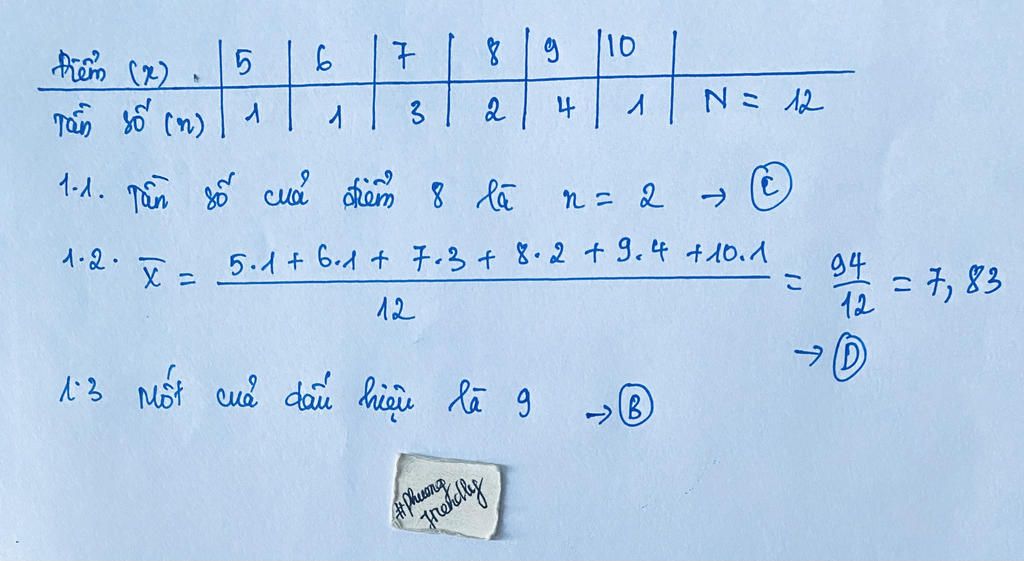 Điểm (x) . 5 6 7 8 9 10
Tần số (n) 1 1 3 2 4 1 N = 12
1.1. Tần số của điểm 8 là n = 2 → C
1.2. X̅ = 5.1 + 6.1 + 7.3 + 8.2 + 9.4 + 10.1 / 12 = 94/12 = 7,83
→ D
1.3 Mốt của dấu hiệu là 9 → B
#Phuong
friendly